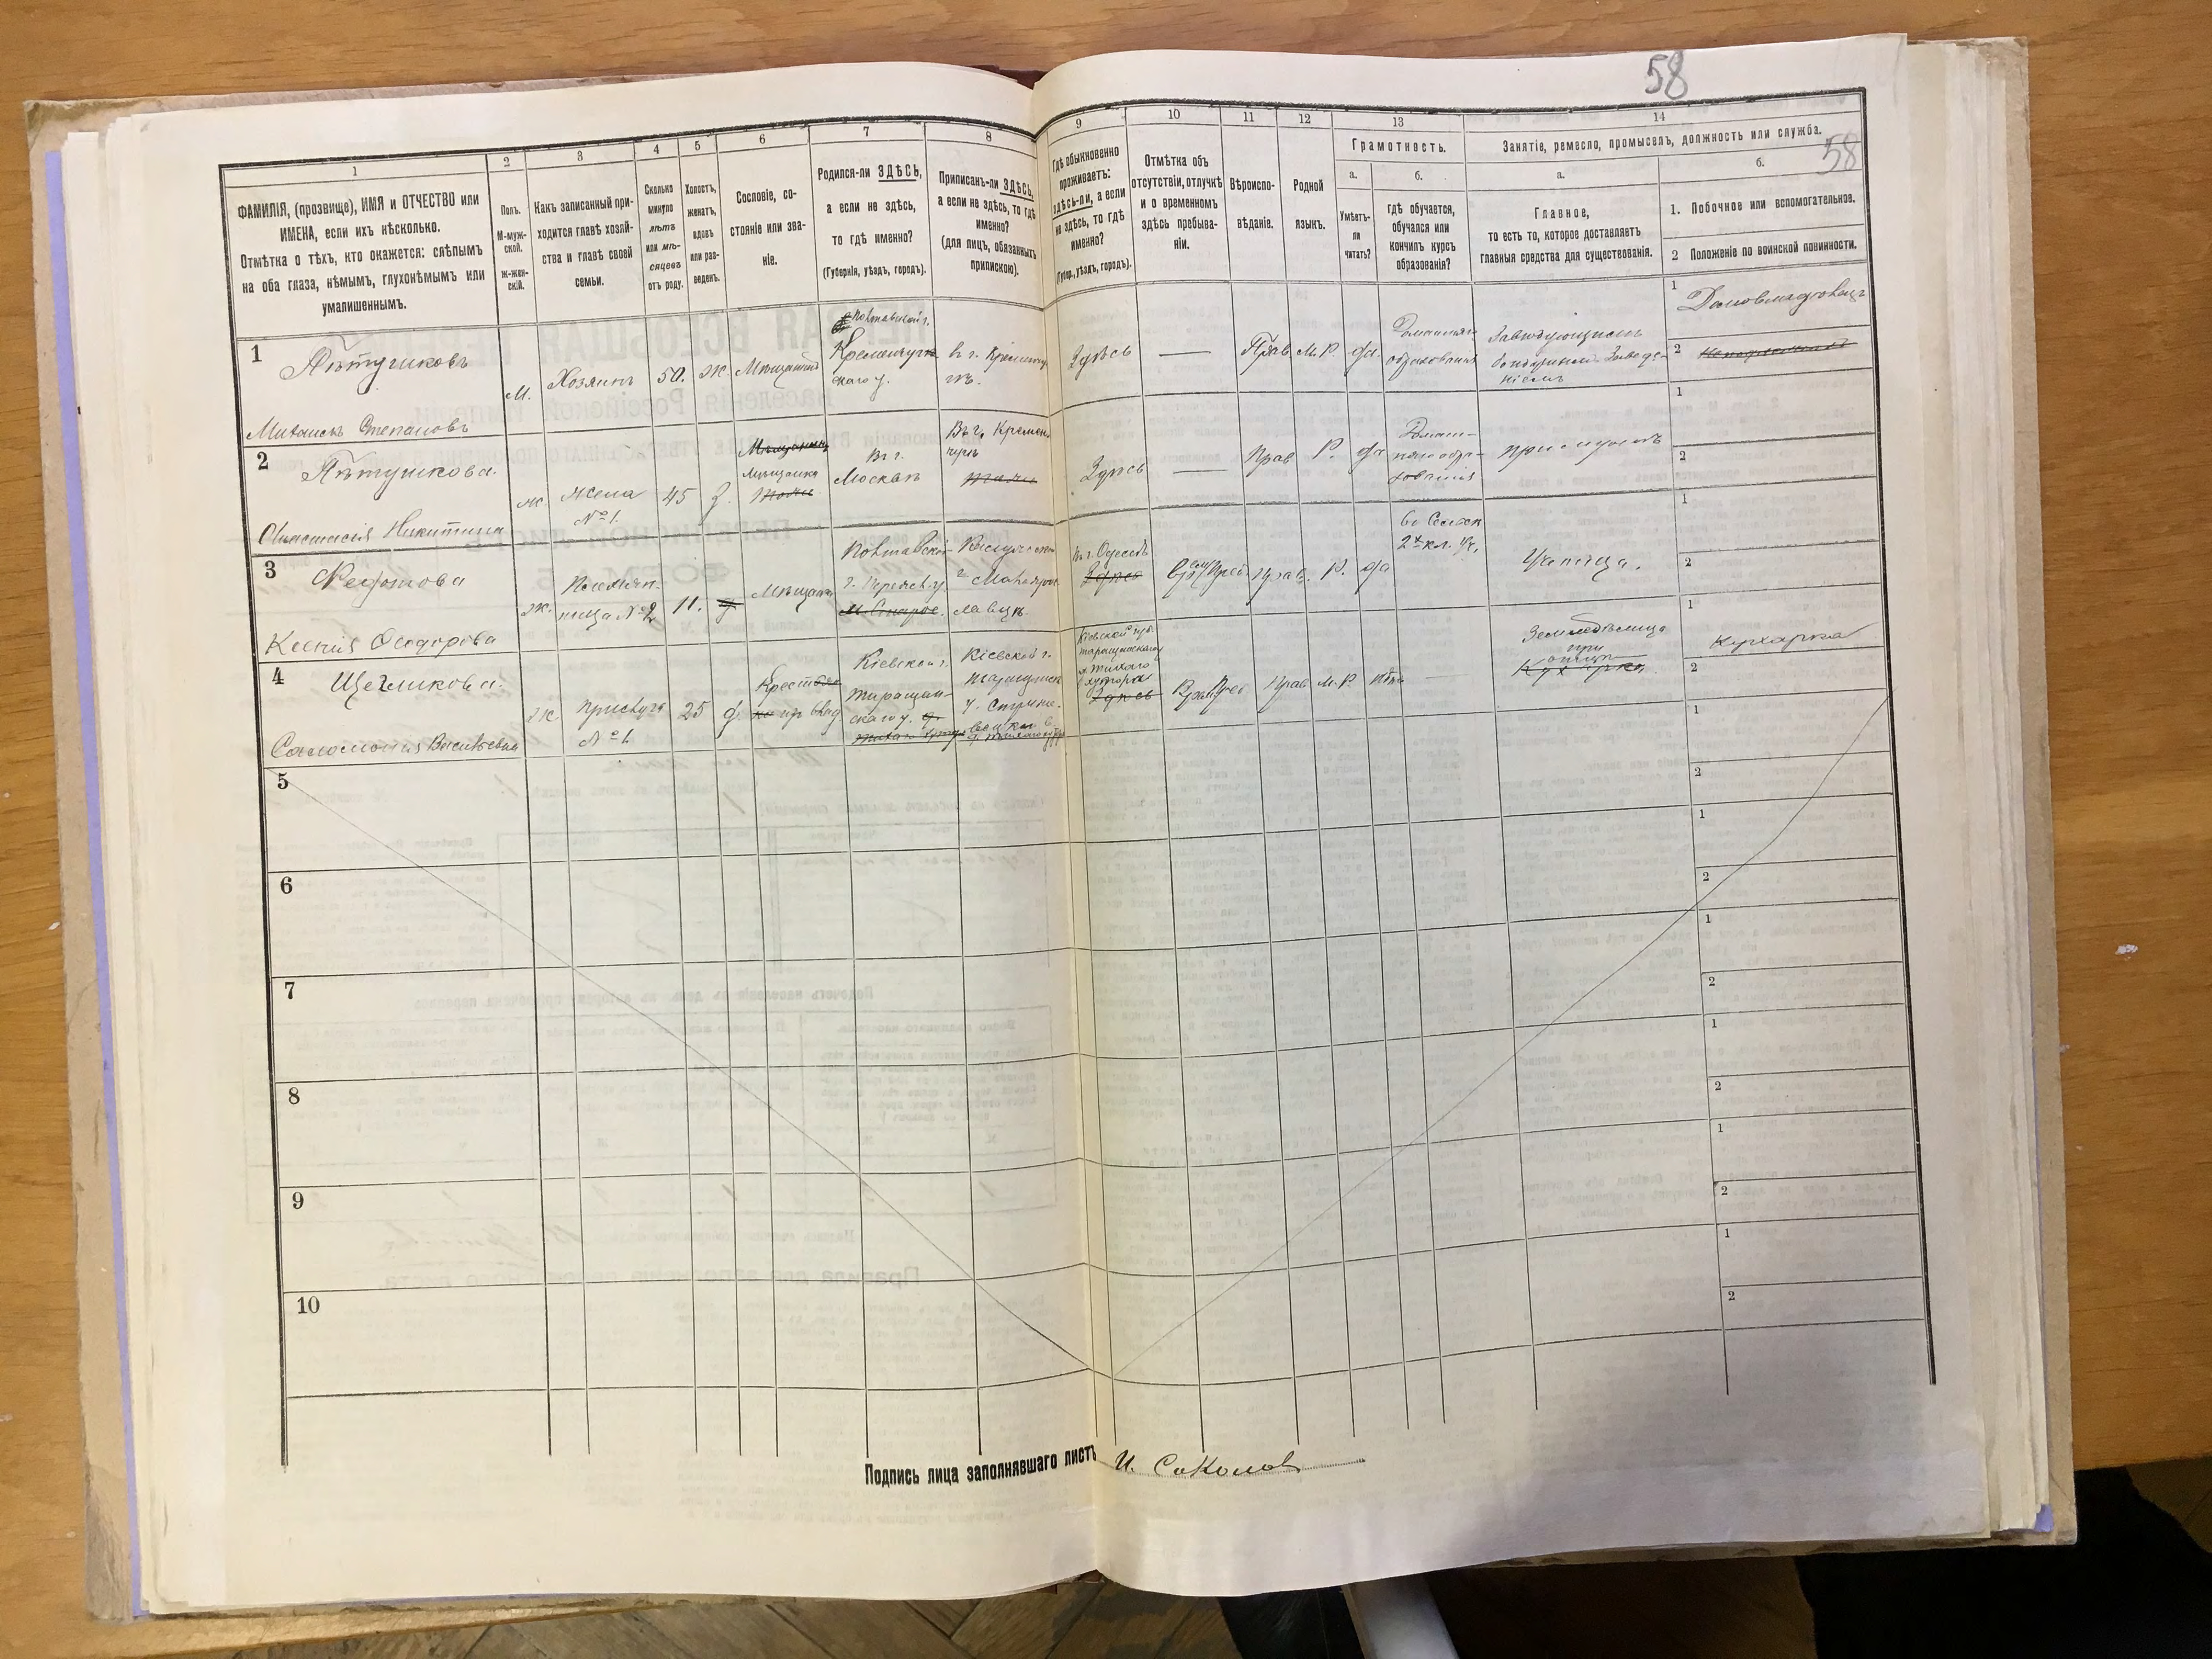 58
58
1
2
3
4
5
6
7
8
9
10
11
12
13
14
ФАМИЛІЯ, (прозвище), ИМЯ и ОТЧЕСТВО или
ИМЕНА, если ихъ нѣсколько.
Отмѣтка о тѣхъ, кто окажется: слѣпымъ
на оба глаза, нѣмымъ, глухонѣмымъ или
умалишеннымъ.
Полъ.
М-муж-
ской.
Ж-жен-
скій.
Какъ записанный при-
ходится главѣ хозяй-
ства и главѣ своей
семьи.
Сколько
минуло
лѣтъ
или мѣ-
сяцевъ
отъ роду.
Холостъ,
женатъ,
вдовъ
или раз-
веденъ.
Сословіе, со-
стояніе или зва-
ніе.
Родился-ли ЗДѢСЬ,
а если не здѣсь,
то гдѣ именно?
(Губернія, уѣздъ, городъ).
Приписанъ-ли ЗДѢСЬ,
а если не здѣсь, то гдѣ
именно?
(для лицъ, обязанныхъ
припискою).
Гдѣ обыкновенно
проживаетъ:
здѣсь-ли, а если
не здѣсь, то гдѣ
именно?
(Губер., уѣздъ, городъ).
Отмѣтка объ
отсутствіи, отлучкѣ
и о временномъ
здѣсь пребыва-
ніи.
Вѣроиспо-
вѣданіе.
Родной
языкъ.
Грамотность.
а.
Умѣетъ-
ли
читать?
б.
гдѣ обучается,
обучался или
кончилъ курсъ
образованія?
Занятіе, ремесло, промыселъ, должность или служба.
а.
Главное,
то есть то, которое доставляетъ
главныя средства для существованія.
б.
1. Побочное или вспомогательное.
2 Положеніе по воинской повинности.
1
Пѣтушковъ
Степановъ
М.
Хозяинъ
50.
Ж.
Мѣщанинъ
Полтавской г.
Кременчуг
скаго у.
въ г. Кременчу
гѣ.
Здѣсь
Прав
М.Р.
да
Домашняго
образованія
Завѣдующимъ
Заведе-
ніемъ
1
Домовладѣлецъ
2
2
Пѣтушкова.
Анастасія Никитина
ж.
Жена
№ 1.
45
З.
Мѣщанка
въ г.
Москвѣ
Въ г. Кремен
чугѣ
Здѣсь
Прав
Р.
да
Домаш-
няго обра-
зованія
при мужѣ
1
2
3
Федотова
Ксенія
ж.
Племян-
ница № 2
11.
Мѣщанка
Полтавской
въ г. Одессѣ
Здѣсь
Прав.
Р.
да
2х кл. Уч.
Ученица.
1
2
4
Щегликова.
Соломонія Васильевна
ж
Прислуга
№ 1.
25
д.
Крестьян
Кіевской г.
Таращан-
скаго у.
Кіевской г.
Кіевской губ
Таращанскаго
Здѣсь
Прав
М.Р.
нѣтъ
Земледѣлица
при
отцѣ
Кухарка
1
Кухарка
2
5
1
2
6
1
2
7
1
2
8
1
2
9
1
2
10
1
2
Подпись лица заполнявшаго листъ И. Соколов